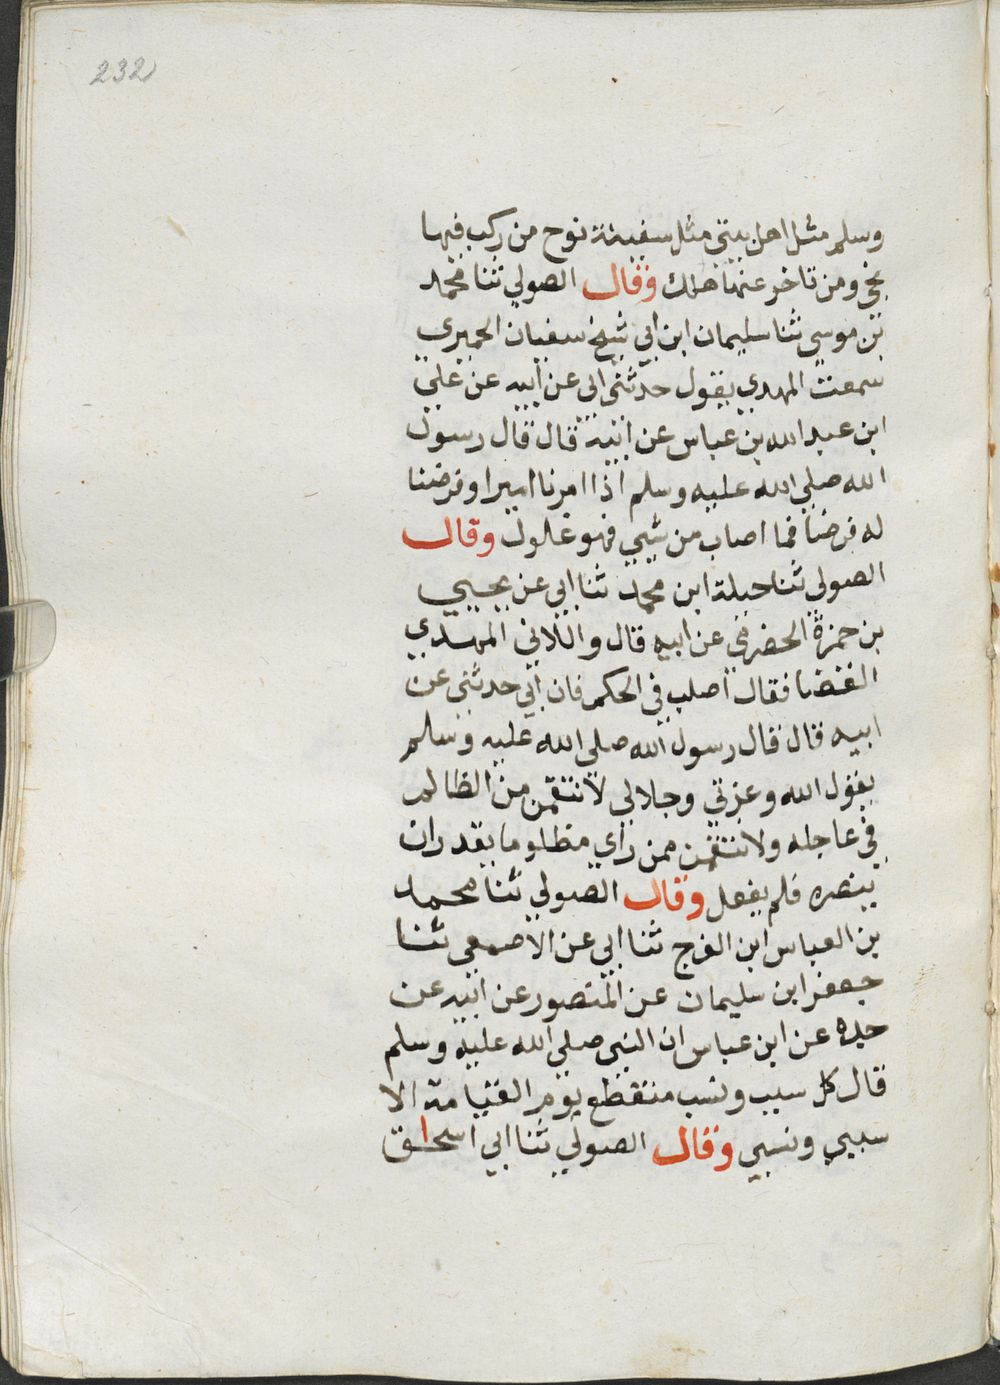 232
وسلم مثل اهل بيتي مثل سفينة نوح من ركب فيها
نجي ومن تاخر عنها هلك وقال الصولي ثنا محمد
بن موسي ثنا سليمان ابن ابي شيخ سفيان الحميري
سمعت المهدي يقول حدثني ابي عن ابيه عن علي
ابن عبد الله بن عباس عن ابيه قال قال رسول
الله صلي الله عليه وسلم اذا امرنا اميرا وفرضنا
له فرضا فما اصاب من شيي فهو غلول وقال
الصولي ثنا جبلة ابن محمد ثنا ابي عن يحيي
بن حمزة الحضرمي عن ابيه قال واللاني المهدي
القضا فقال اصلب في الحكم فان ابي حدثني عن
ابيه قال قال رسول الله صلي الله عليه وسلم
يقول الله وعزتي وجلالي لانتقمن من الظالم
في عاجله ولانتقمن ممن راي مظلوما يقدر ان
ينصره فلم يفعل وقال الصولي ثنا محمد
بن العباس ابن الفرج ثنا ابي عن الاصمعي ثنا
جعفر ابن سليمان عن المنصور عن ابيه عن
جده عن ابن عباس ان النبي صلي الله عليه وسلم
قال كل سبب ونسب منقطع يوم القيامة الا
سببي ونسبي وقال الصولي ثنا ابي اسحاق